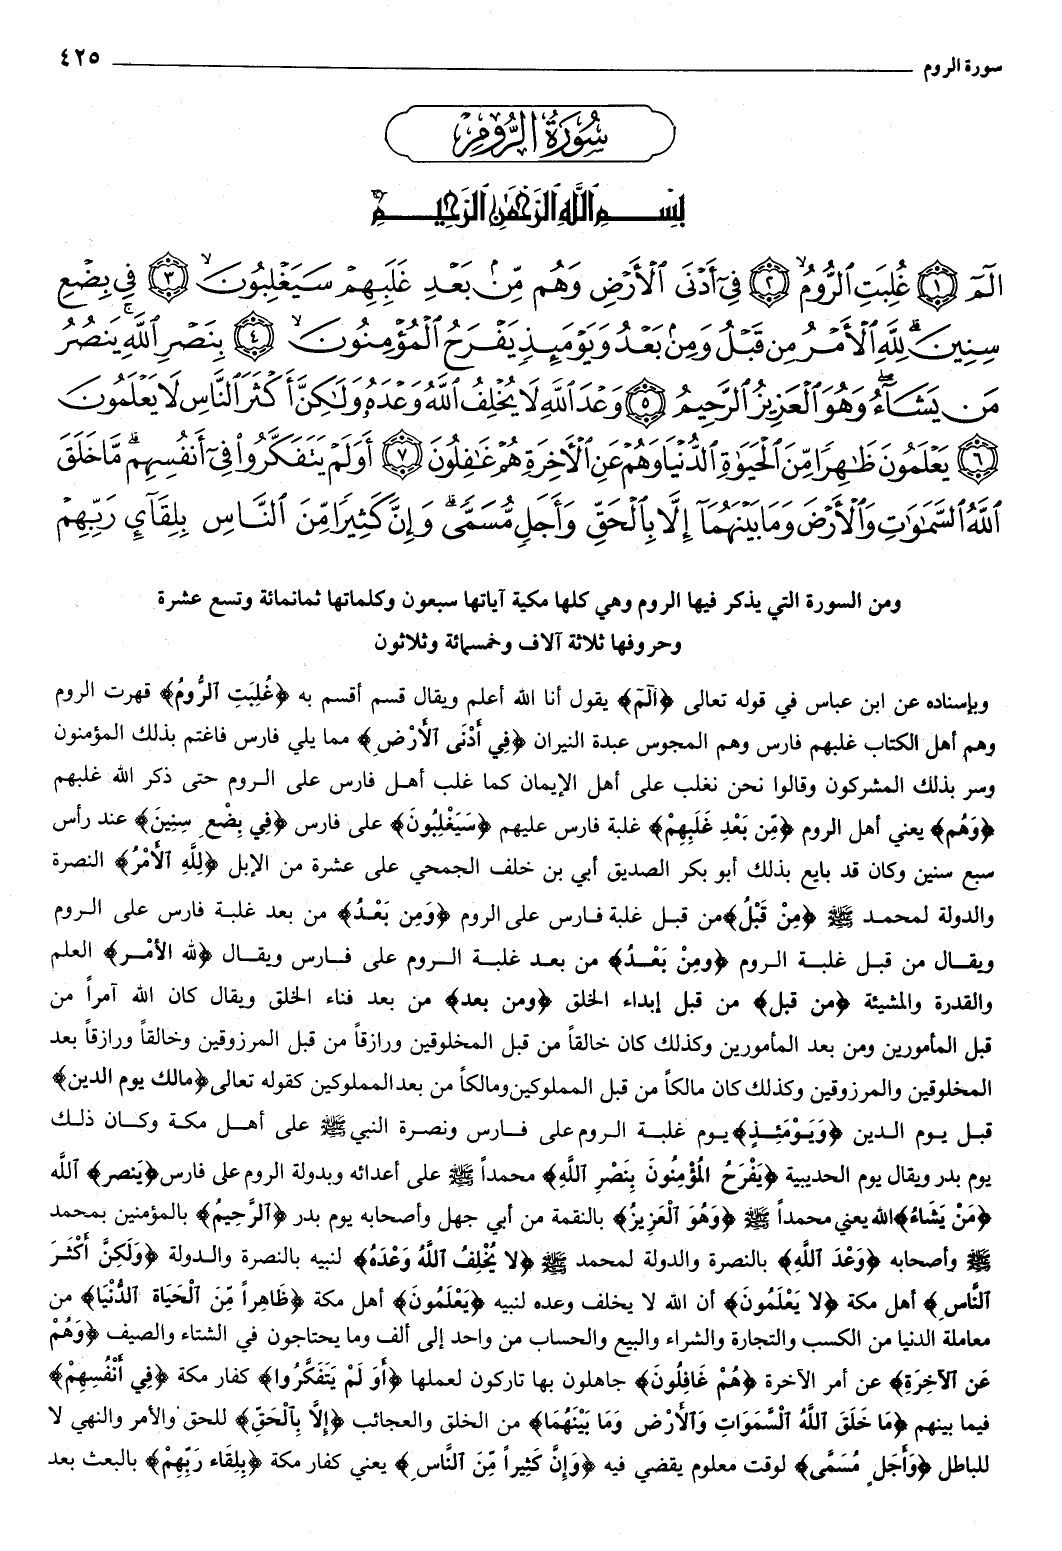 سورة الروم ٤٢٥
سُورَةُ الرُّومِ
بِسْمِ ٱللَّهِ ٱلرَّحْمَٰنِ ٱلرَّحِيمِ
الٓمٓ ١ غُلِبَتِ ٱلرُّومُ ٢ فِىٓ أَدْنَى ٱلْأَرْضِ وَهُم مِّنۢ بَعْدِ غَلَبِهِمْ سَيَغْلِبُونَ ٣ فِى بِضْعِ
سِنِينَ ۗ لِلَّهِ ٱلْأَمْرُ مِن قَبْلُ وَمِنۢ بَعْدُ وَيَوْمَئِذٍ يَفْرَحُ ٱلْمُؤْمِنُونَ ٤ بِنَصْرِ ٱللَّهِ ۚ يَنصُرُ
مَن يَشَآءُ ۖ وَهُوَ ٱلْعَزِيزُ ٱلرَّحِيمُ ٥ وَعْدَ ٱللَّهِ لَا يُخْلِفُ ٱللَّهُ وَعْدَهُۥ وَلَٰكِنَّ أَكْثَرَ ٱلنَّاسِ لَا يَعْلَمُونَ
٦ يَعْلَمُونَ ظَٰهِرًا مِّنَ ٱلْحَيَوٰةِ ٱلدُّنْيَا وَهُمْ عَنِ ٱلْأَخِرَةِ هُمْ غَٰفِلُونَ ٧ أَوَلَمْ يَتَفَكَّرُوا۟ فِىٓ أَنفُسِهِم ۗ مَّا خَلَقَ
ٱللَّهُ ٱلسَّمَٰوَٰتِ وَٱلْأَرْضَ وَمَا بَيْنَهُمَآ إِلَّا بِٱلْحَقِّ وَأَجَلٍ مُّسَمًّى ۗ وَإِنَّ كَثِيرًا مِّنَ ٱلنَّاسِ بِلِقَآئِ رَبِّهِمْ
ومن السورة التي يذكر فيها الروم وهي كلها مكية آياتها سبعون وكلماتها ثمانمائة وتسع عشرة
وحروفها ثلاثة آلاف وخمسمائة وثلاثون
وبإسناده عن ابن عباس في قوله تعالى ﴿الٓمٓ﴾ يقول أنا الله أعلم ويقال قسم أقسم به ﴿غُلِبَتِ ٱلرُّومُ﴾ قهرت الروم
وهم أهل الكتاب غلبهم فارس وهم المجوس عبدة النيران ﴿فِي أَدْنَى ٱلْأَرْضِ﴾ مما يلي فارس فاغتم بذلك المؤمنون
وسر بذلك المشركون وقالوا نحن نغلب على أهل الإيمان كما غلب أهل فارس على الروم حتى ذكر الله غلبهم
﴿وَهُم﴾ يعني أهل الروم ﴿مِّن بَعْدِ غَلَبِهِمْ﴾ غلبة فارس عليهم ﴿سَيَغْلِبُونَ﴾ على فارس ﴿فِي بِضْعِ سِنِينَ﴾ عند رأس
سبع سنين وكان قد بايع بذلك أبو بكر الصديق أبي بن خلف الجمحي على عشرة من الإبل ﴿لِلَّهِ ٱلْأَمْرُ﴾ النصرة
والدولة لمحمد ﷺ ﴿مِنْ قَبْلُ﴾ من قبل غلبة فارس على الروم ﴿وَمِن بَعْدُ﴾ من بعد غلبة فارس على الروم
ويقال من قبل غلبة الروم ﴿ومِنْ بَعْدُ﴾ من بعد غلبة الروم على فارس ويقال ﴿لله الأمْر﴾ العلم
والقدرة والمشيئة ﴿من قبل﴾ من قبل إبداء الخلق ﴿ومن بعد﴾ من بعد فناء الخلق ويقال كان الله آمراً من
قبل المأمورين ومن بعد المأمورين وكذلك كان خالقاً من قبل المخلوقين ورازقاً من قبل المرزوقين وخالقاً ورازقاً بعد
المخلوقين والمرزوقين وكذلك كان مالكاً من قبل المملوكين ومالكاً من بعد المملوكين كقوله تعالى ﴿مالك يوم الدين﴾
قبل يوم الدين ﴿وَيَوْمَئِذٍ﴾ يوم غلبة الروم على فارس ونصرة النبي ﷺ على أهل مكة وكان ذلك
يوم بدر ويقال يوم الحديبية ﴿يَفْرَحُ الْمُؤْمِنُونَ بِنَصْرِ اللَّهِ﴾ محمداً ﷺ على أعدائه وبدولة الروم على فارس ﴿يَنصر﴾ الله
﴿مَنْ يَشَاءُ﴾ الله يعني محمداً ﷺ ﴿وَهُوَ ٱلْعَزِيزُ﴾ بالنقمة من أبي جهل وأصحابه يوم بدر ﴿ٱلرَّحِيمُ﴾ بالمؤمنين بمحمد
ﷺ وأصحابه ﴿وَعْدَ ٱللَّهِ﴾ بالنصرة والدولة لمحمد ﷺ ﴿لا يُخْلِفُ ٱللَّهُ وَعْدَهُ﴾ لنبيه بالنصرة والدولة ﴿وَلَكِنَّ أَكْثَرَ
ٱلنَّاسِ﴾ أهل مكة ﴿لا يَعْلَمُونَ﴾ أن الله لا يخلف وعده لنبيه ﴿يَعْلَمُونَ﴾ أهل مكة ﴿ظَاهِراً مِّنَ ٱلْحَيَاةِ ٱلدُّنْيَا﴾ من
معاملة الدنيا من الكسب والتجارة والشراء والبيع والحساب من واحد إلى ألف وما يحتاجون في الشتاء والصيف ﴿وَهُمْ
عَنِ ٱلآخِرَةِ﴾ عن أمر الآخرة ﴿هُمْ غَافِلُونَ﴾ جاهلون بها تاركون لعملها ﴿أَوَ لَمْ يَتَفَكَّرُوا﴾ كفار مكة ﴿فِي أَنْفُسِهِمْ﴾
فيما بينهم ﴿مَا خَلَقَ ٱللَّهُ ٱلْسَّمَوَاتِ وَٱلْأَرْضَ وَمَا بَيْنَهُمَا﴾ من الخلق والعجائب ﴿إِلَّا بِٱلْحَقِّ﴾ للحق والأمر والنهي لا
للباطل ﴿وَأَجَلٍ مُسَمًّى﴾ لوقت معلوم يقضي فيه ﴿وَإِنَّ كَثِيراً مِّنَ ٱلنَّاسِ﴾ يعني كفار مكة ﴿بِلِقَاء رَبِّهِمْ﴾ بالبعث بعد